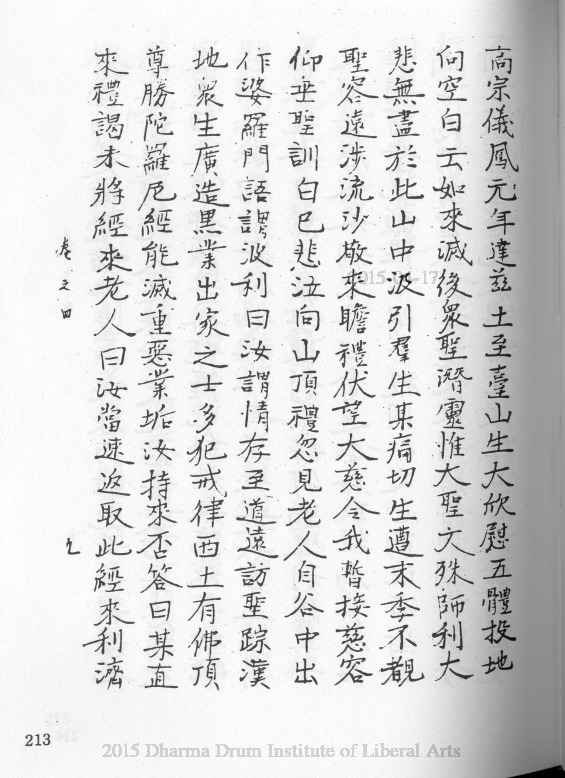 高宗儀鳳元年達茲土至臺山生大欣慰五體投地
向空白云如來滅後衆聖潛靈惟大聖文殊師利大
悲無盡於此山中汲引羣生某痛切生遭末季不覩
聖容遠涉流沙敬來瞻禮伏望大慈令我暫接慈容
仰垂聖訓白已悲泣向山頂禮忽見老人自谷中出
作婆羅門語謂波利曰汝謂情存至道遠訪聖踪漢
地衆生廣造黑業出家之士多犯戒律西土有佛頂
尊勝陀羅尼經能滅重惡業垢汝持來否答曰某直
來禮謁未將經來老人曰汝當速返取此經來利濟
卷之四
九
213
2015 Dharma Drum Institute of Liberal Arts